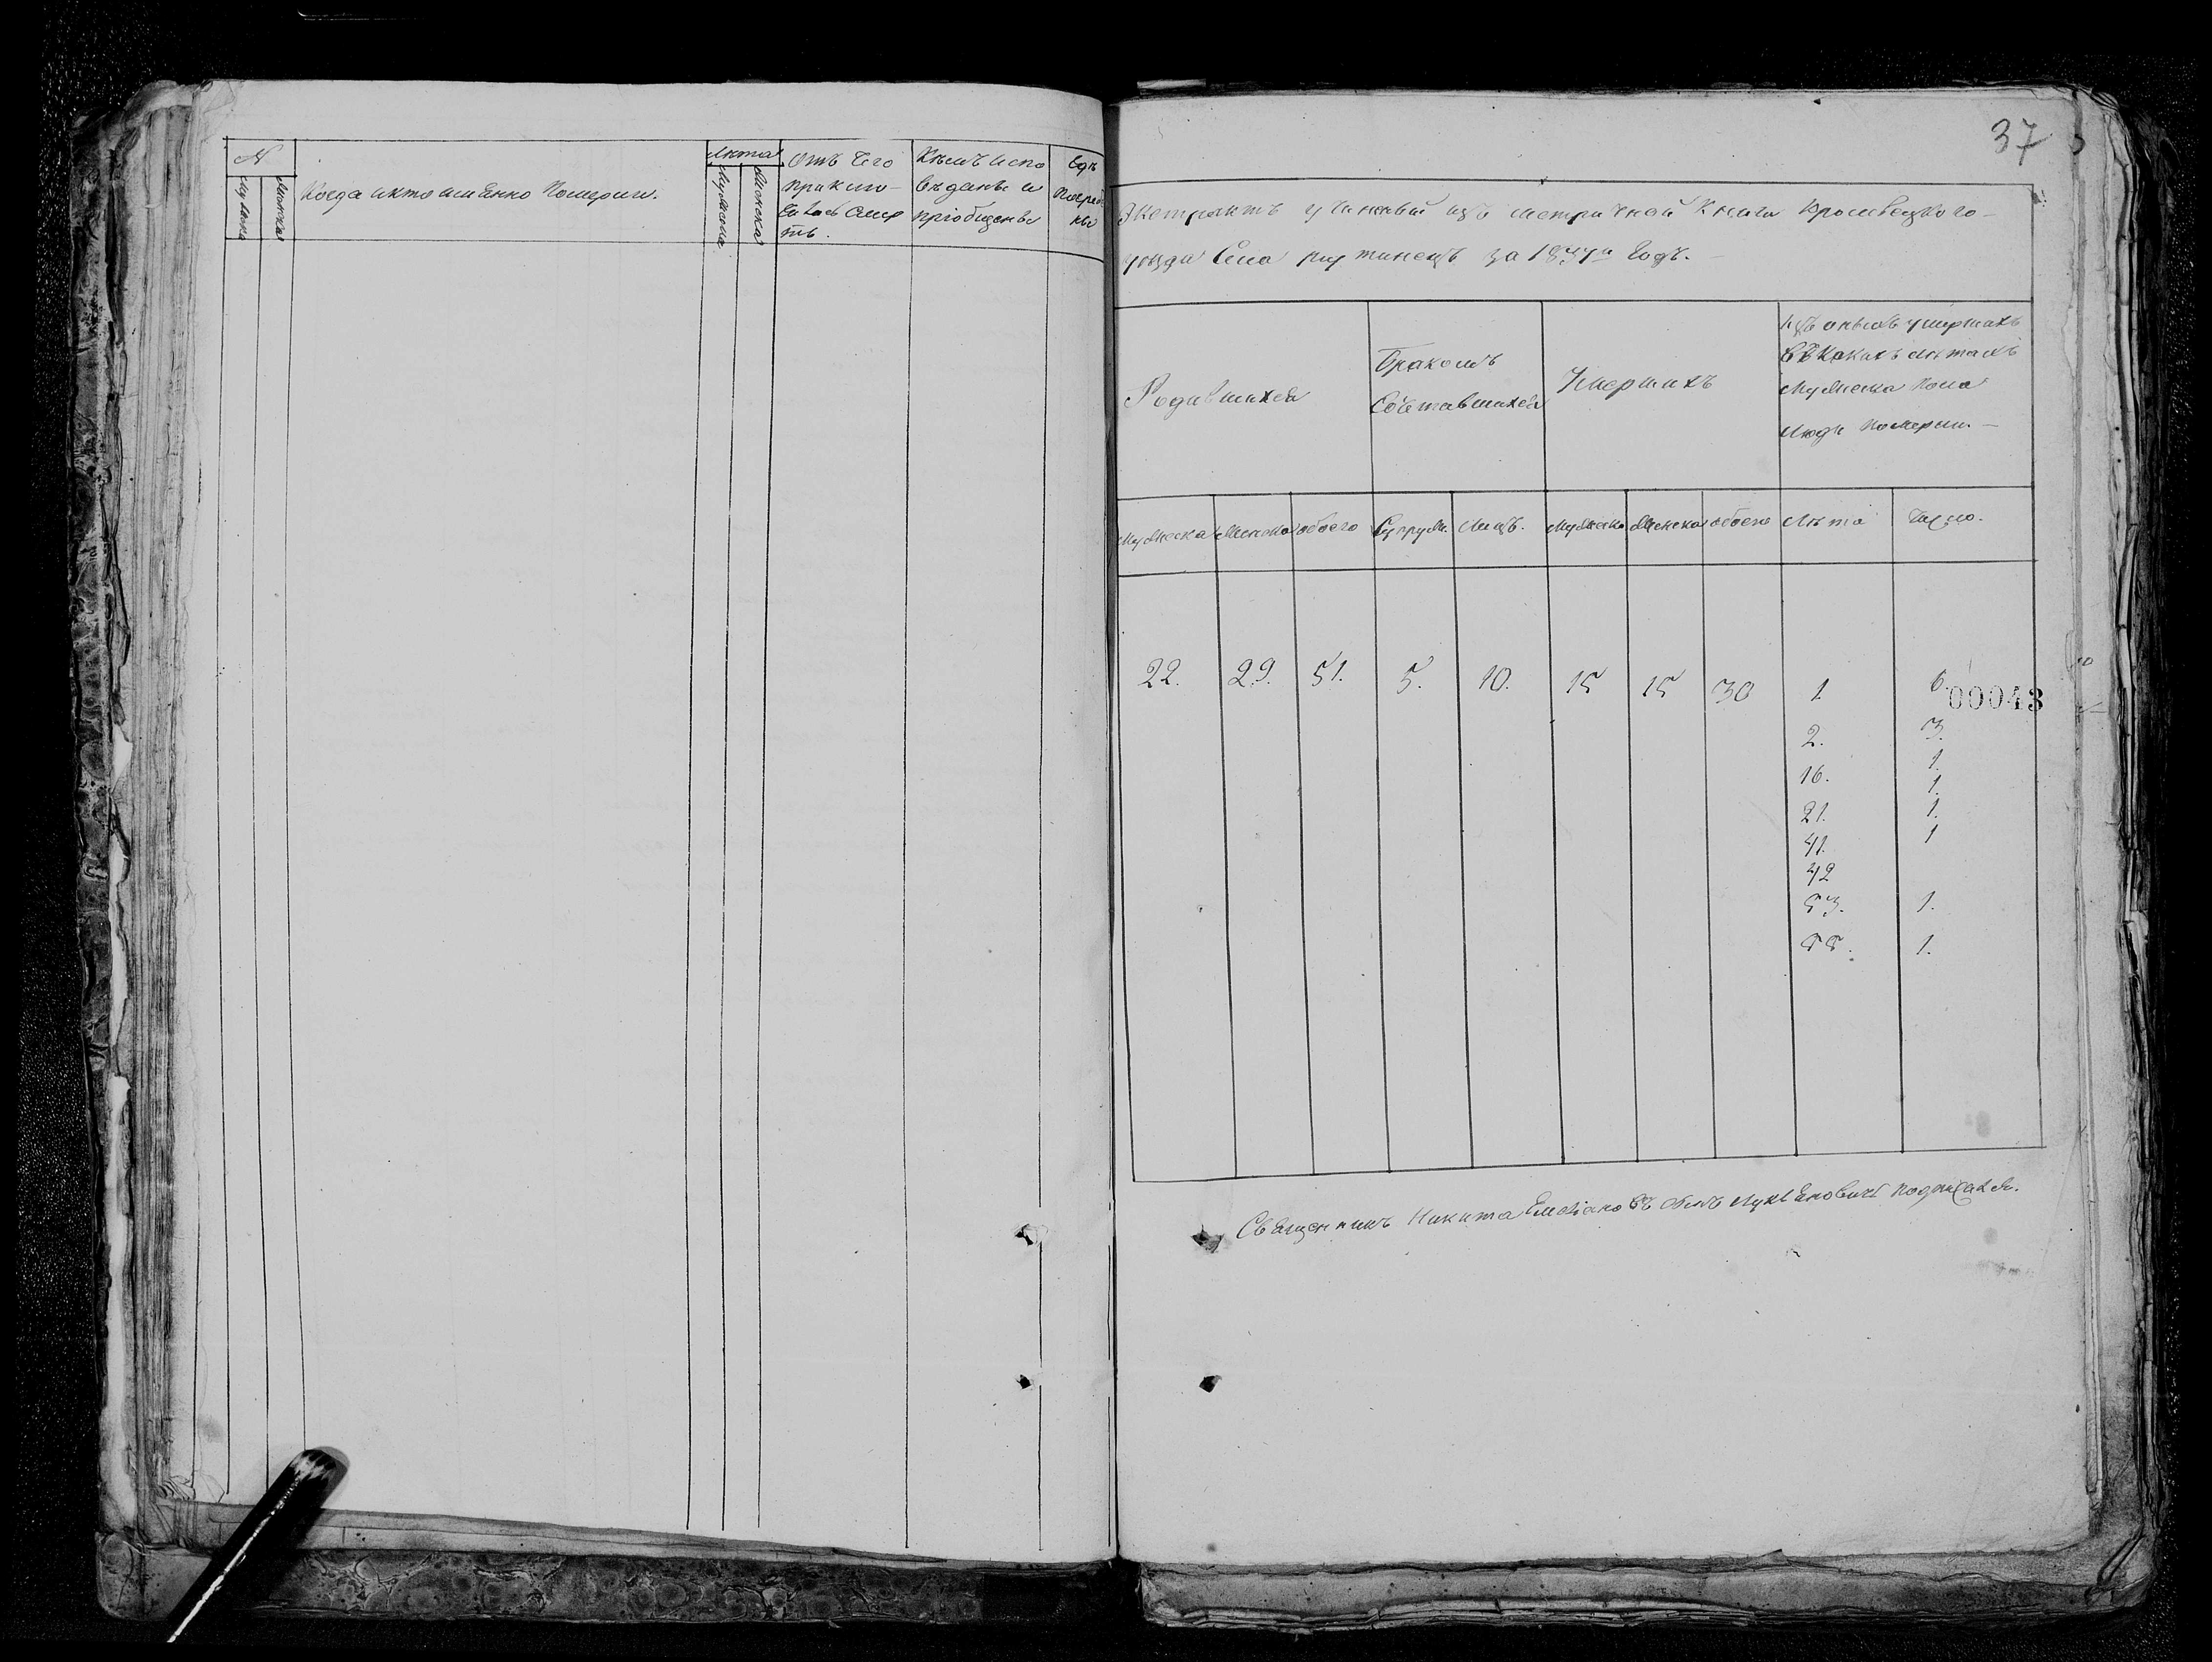 №
Мужска
Женска
Когда и кто именно Померли.
Лѣта
Мужска
Женска
Отъ Чего
приклю-
чилась Смер
ть.
Кѣмъ испо
вѣданы и
пріобщены
Гдѣ
Погребе
ны
37
Экстрактъ учиненый изъ метричной Книги Кролевецкого
уѣзда Села за Годъ.
Родившихся
Бракомъ
Сочетавшихся
Умершихъ
Изъ оныхъ умершихъ
въ Какихъ лѣтахъ
Мужеска Пола
Люде Померли.
Мужеска Женска обоего Супруж. Лицъ. Мужеска Женска обоего Лѣта Число.
22. 29. 51. 5. 10. 15 15 30 1. 6
00043
2. 3.
16. 1.
21. 1.
41. 1.
42 1
53. 1.
55. 1.
Священникъ Никита Емеліановъ сынъ подписался.